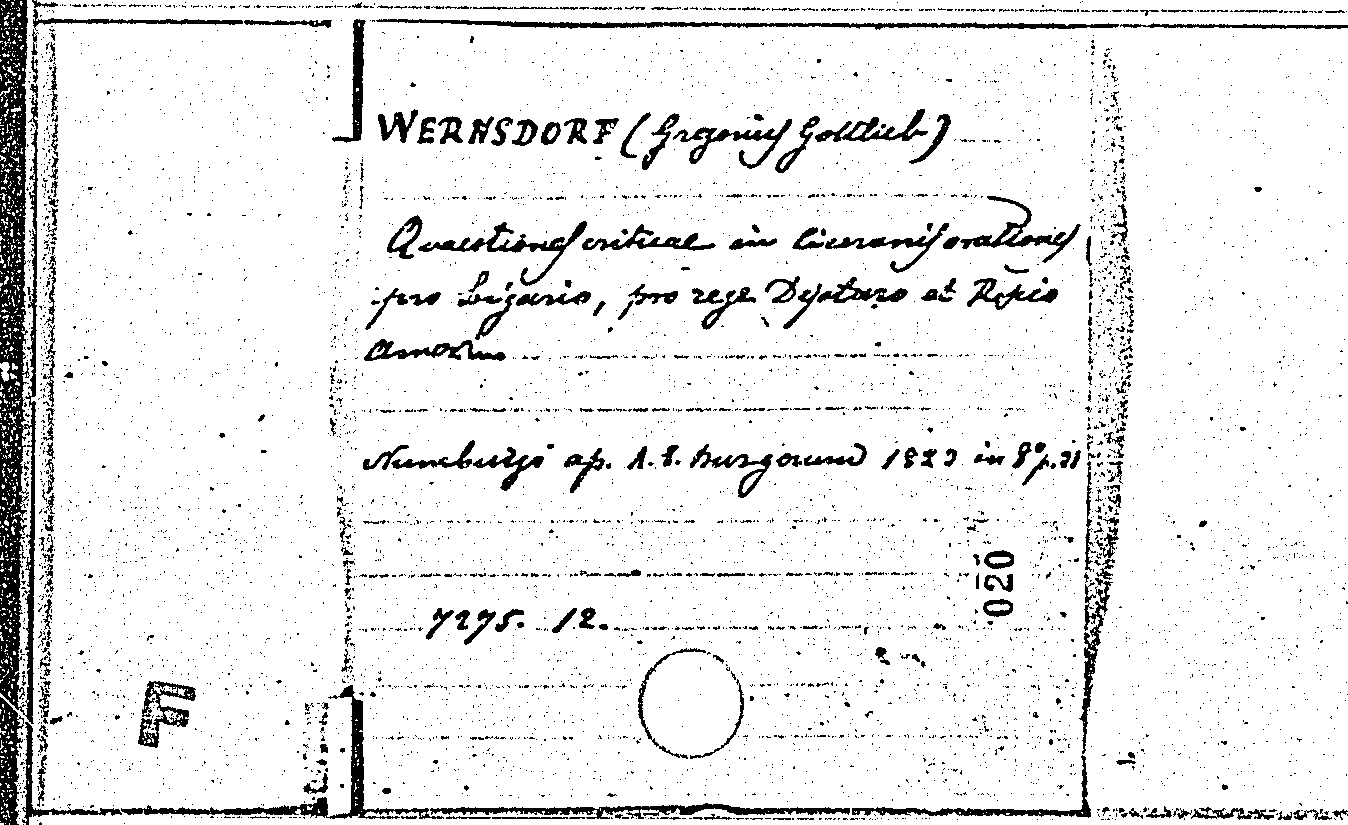 WERNSDORF (Grgorius Gottlieb)
Quaestiones criticae in Ciceronis orationes
pro Ligario, pro rege Dejotaro et
Numburgi ap. A. F. 1823 in 8° p. 21
020
7275. 12.
F